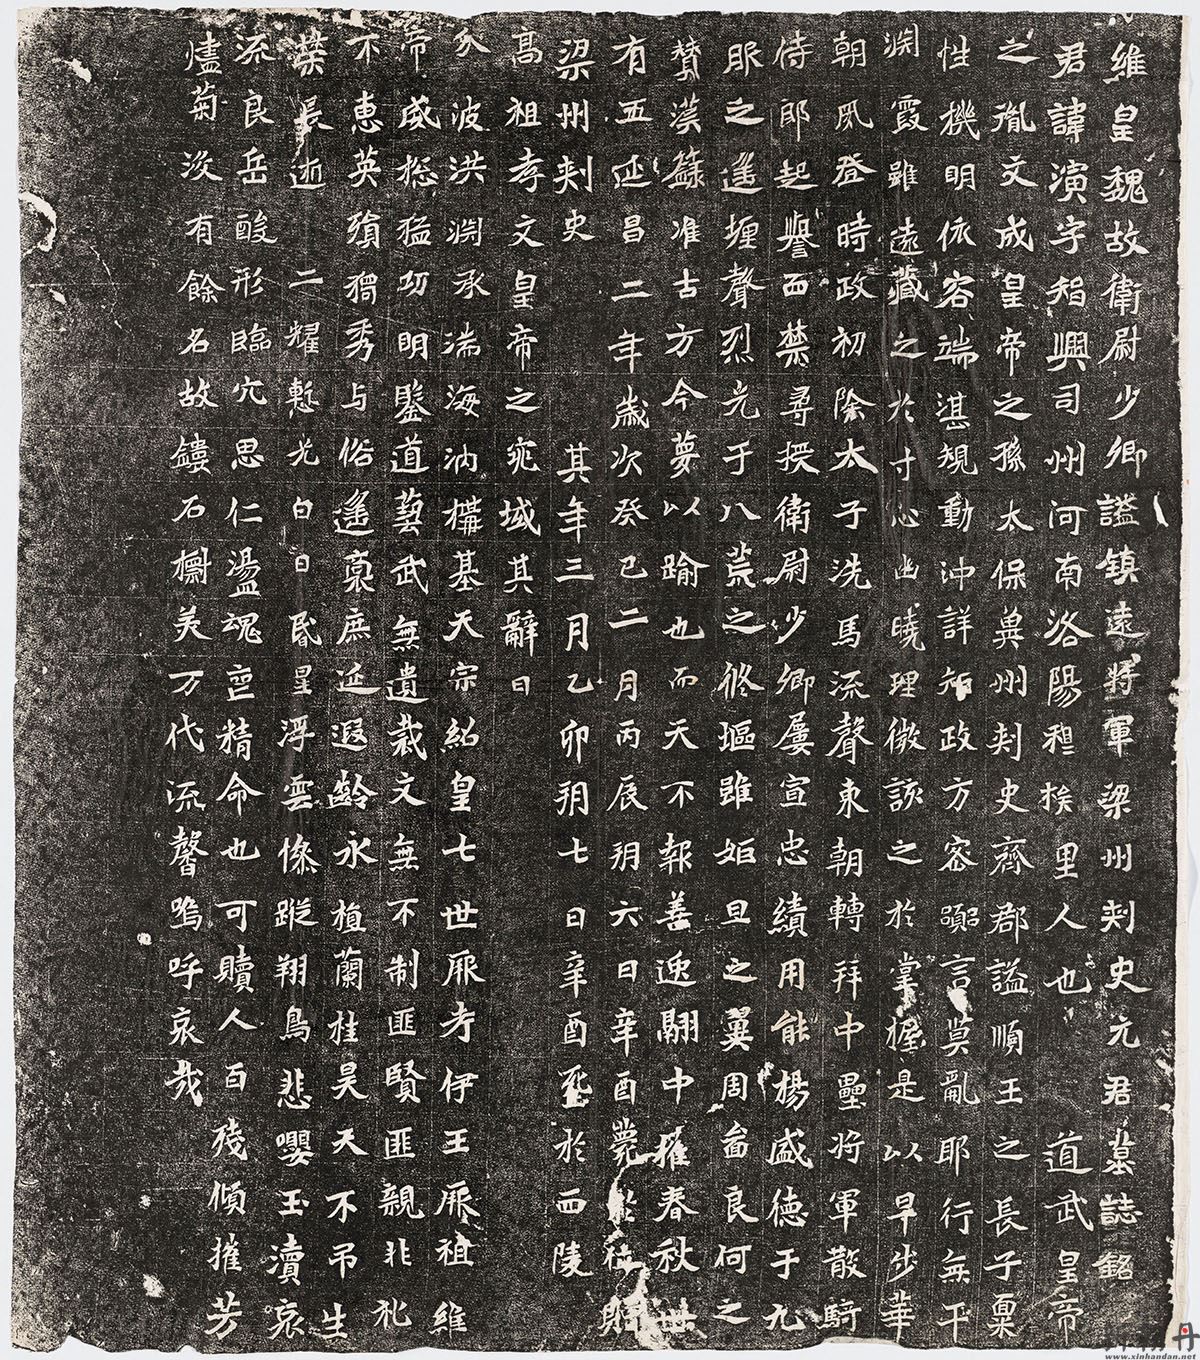 維皇魏故衛尉少卿謚鎮遠將軍梁州刾史元君墓誌銘
君諱演字智興司州河南洛陽穆族里人也 道武皇帝
之胤文成皇帝之孫太保冀州刾史齊郡謚順王之長子稟
性機明依容端湛規動沖詳知政方密顯言莫亂耶行無平
渊霞雖遠藏之於寸心幽曉理微該之於掌握是以早步華
朝夙登時政初除太子洗馬流聲東朝轉拜中壘將軍散騎
侍郎起譽西禁尋授衛尉少卿屢宣忠績用能楊盛德于九
服之遥堙聲烈光于八荒之脩塸雖姬旦之翼周留良何之
贊漢籙准古方今夢以踰也而天不報善迎翮中摧春秋卅
有五延昌二年歲次癸巳二月丙辰朔六日辛酉薨於 賜
梁州刾史 其年三月乙卯朔七日辛酉 於西陵
高祖孝文皇帝之兆域其辭曰
分波洪渊承湍海汭構基天宗紹皇七世厥考伊王厥祖維
帝威愻猛功明鑒道藝武無遺裁文無不制匪賢匪親非礼
不惠英殞獨秀与俗遥裒庶延遐齡永植蘭桂昊天不吊生
榮長逝 二耀慙光白日昏星浮雲慘蹤翔鳥悲嚶玉瀆哀
流良岳酸形臨穴思仁盪魂亡精命也可贖人百殘傾摧芳
燼菊没有餘名故鏤石櫥美万代流馨嗚呼哀哉
www.xinhandan.net